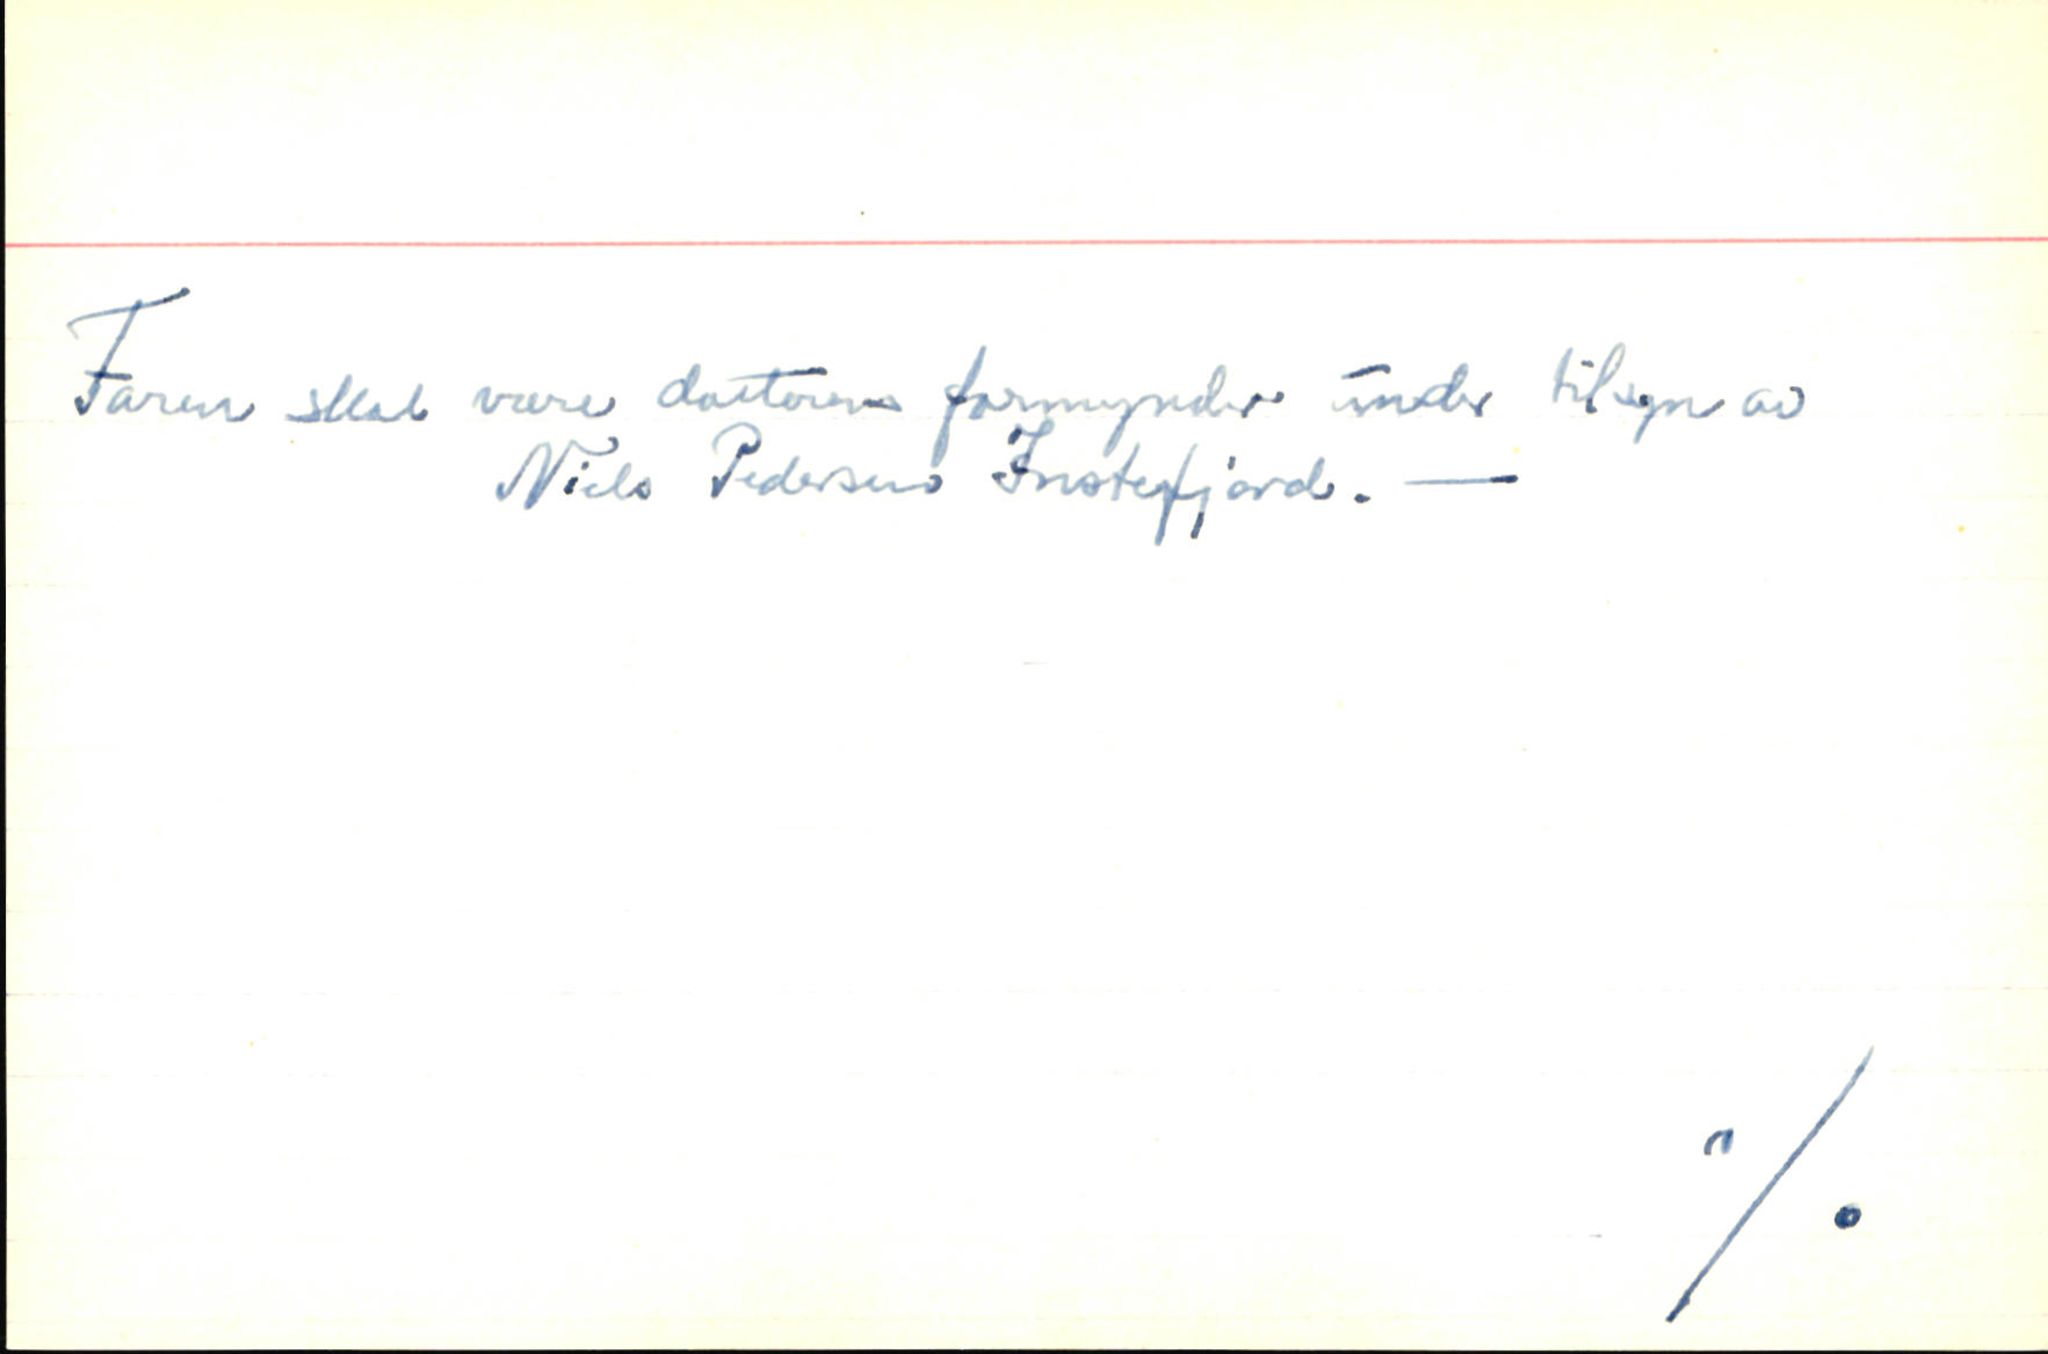 Faren skal være datterens formynder under tilsyn av
Niels Pedersen Instefjord. —